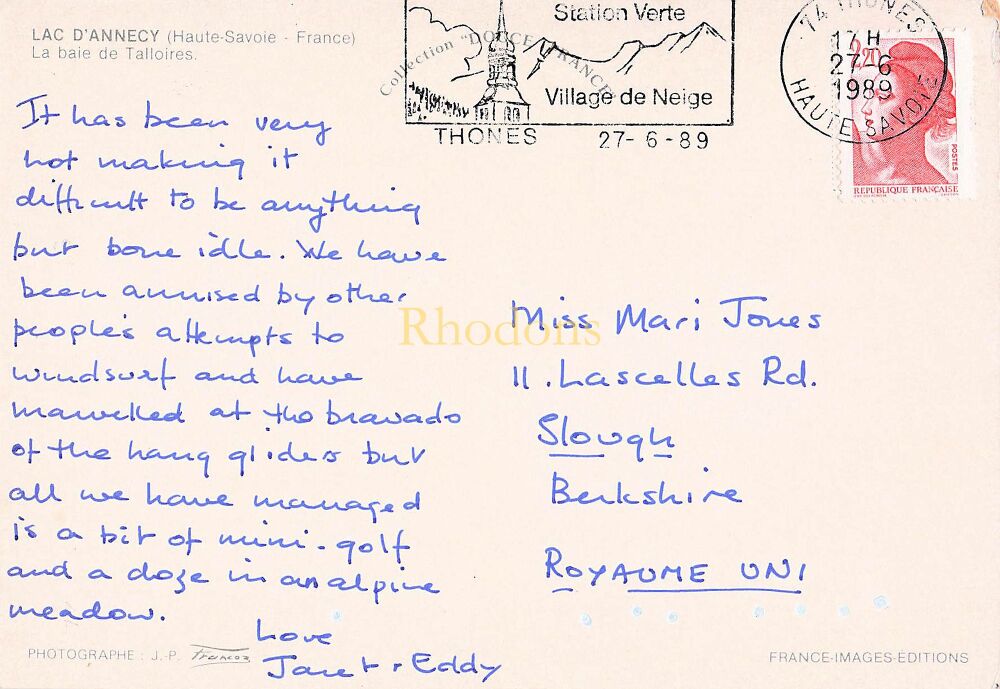 LAC D'ANNECY (Haute-Savoie - France)
La baie de Talloires.
Collection "DOUCE FRANCE"
Station Verte
Village de Neige
THONES 27-6-89
74 THONES
17 H
27-6
1989
HAUTE SAVOIE
2,20
POSTES
REPUBLIQUE FRANÇAISE
It has been very
hot making it
difficult to be anything
but bone idle. We have
been amused by other
people's attempts to
windsurf and have
marvelled at the bravado
of the hang gliders but
all we have managed
is a bit of mini-golf
and a doze in an alpine
meadow.
Love
Janet + Eddy
Miss Mari Jones
11. Lascelles Rd.
Slough
Berkshire
ROYAUME UNI
Rhodons
PHOTOGRAPHE : J.-P.
FRANCE-IMAGES-EDITIONS